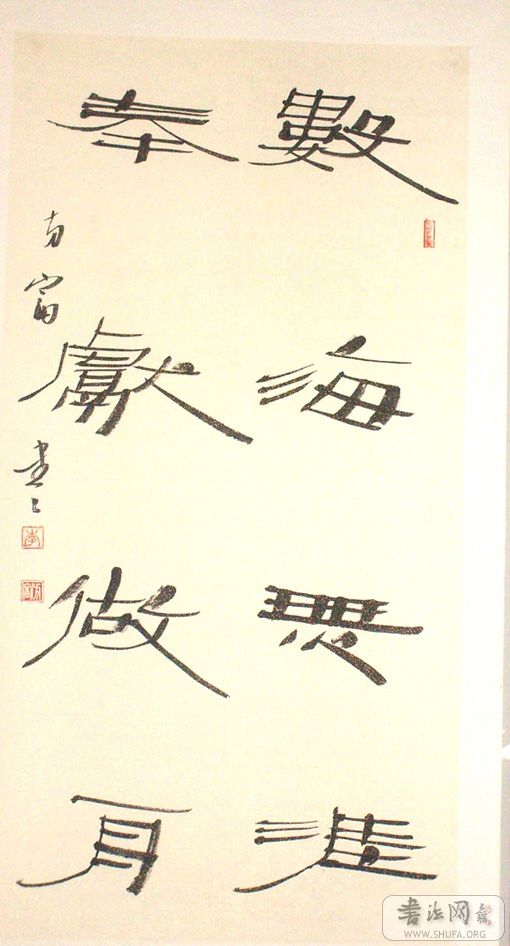 數海無涯
奉獻做
富書
書法网
WWW.SHUFA.ORG